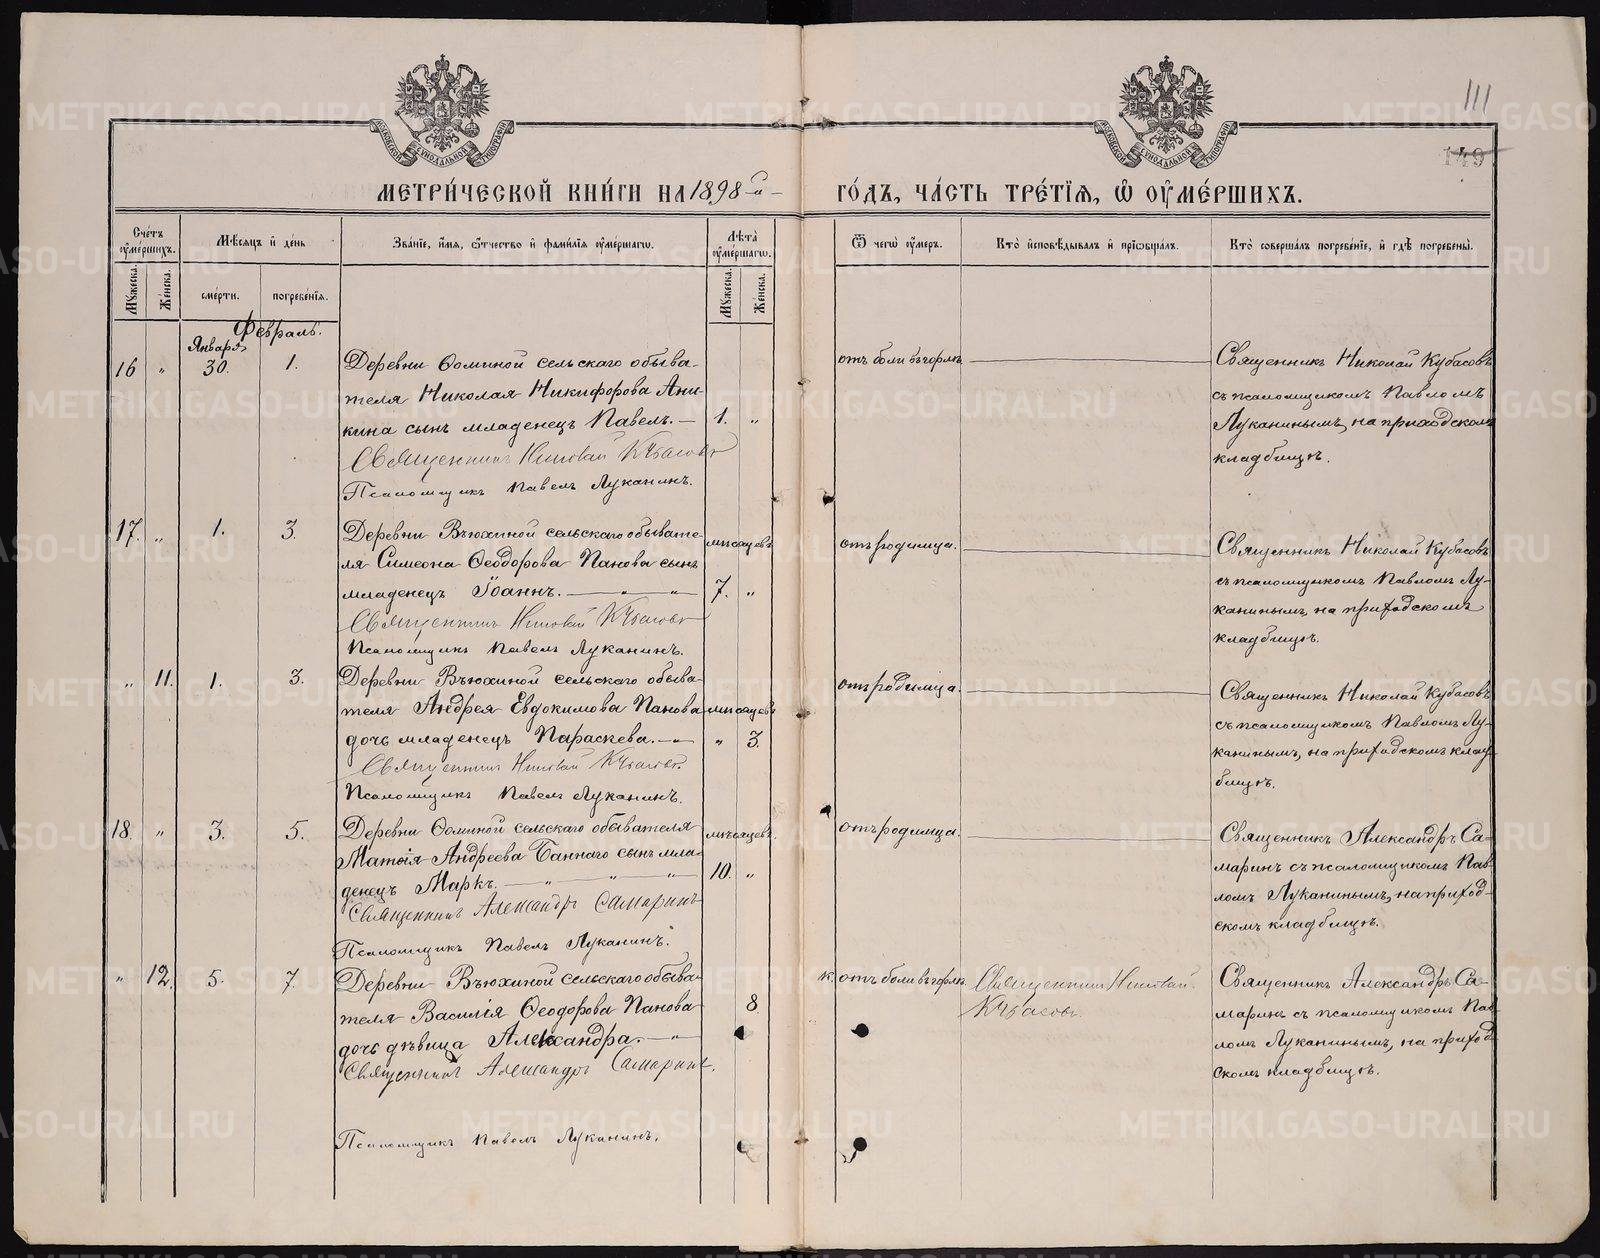 111
149
МОСКОВСКОЙ СѴНОДАЛЬНОЙ ТИПОГРАФІИ
МОСКОВСКОЙ СѴНОДАЛЬНОЙ ТИПОГРАФІИ
МЕТРИ́ЧЕСКОЙ КНИ́ГИ НА 1898-й ГО́ДЪ, ЧА́СТЬ ТРЕ́ТІЯ, Ѡ ОУМЕ́РШИХЪ.
Сче́тъ оуме́ршихъ.
Мꙋжеска.
Же́нска.
Мѣ́сяцъ и де́нь
сме́рти.
погребе́нія.
Зва́ніе, и́мя, ѻ́тчество и фами́лія оуме́ршагѡ.
Лѣта̀ оуме́ршагѡ.
Мꙋжеска.
Же́нска.
Ѿ чегѡ̀ оу́меръ.
Кто̀ и҆сповѣ́дывалъ и прїѡбща́лъ.
Кто̀ соверша́лъ погребе́ніе, и гдѣ̀ погребены̀.
Февраль.
Января
16 „ 30. 1. Деревни Ѳоминой сельскаго обыва-
теля Николая Никифорова Ани-
кина сынъ младенецъ Павелъ.— 1. „
Священникъ Николай Кубасовъ
Псаломщикъ Павелъ Луканинъ.
отъ боли въ горлѣ
Священникъ Николай Кубасовъ
съ псаломщикомъ Павломъ
Луканинымъ, на приходскомъ
кладбищѣ.
17. „ 1. 3. Деревни Вьюхиной сельскаго обывате-
ля Симеона Ѳеодорова Панова сынъ
младенецъ Іоаннъ.— „ „
мѣсяцевъ
7. „
Священникъ Николай Кубасовъ
Псаломщикъ Павелъ Луканинъ.
отъ родимца.
Священникъ Николай Кубасовъ
съ псаломщикомъ Павломъ Лу-
канинымъ, на приходскомъ
кладбищѣ.
„ 11. 1. 3. Деревни Вьюхиной сельскаго обыва-
теля Андрея Евдокимова Панова
дочь младенецъ Параскева.—„
мѣсяцевъ
„ 3.
Священникъ Николай Кубасовъ.
Псаломщикъ Павелъ Луканинъ.
отъ родимца.
Священникъ Николай Кубасовъ
съ псаломщикомъ Павломъ Лу-
канинымъ, на приходскомъ клад-
бищѣ.
18. „ 3. 5. Деревни Ѳоминой сельскаго обывателя
Матѳія Андреева Баннаго сынъ мла-
денецъ Маркъ.— „ „ „
мѣсяцевъ.
10. „
Священникъ Александръ Самаринъ
Псаломщикъ Павелъ Луканинъ.
отъ родимца.
Священникъ Александръ Са-
маринъ съ псаломщикомъ Пав-
ломъ Луканинымъ, на приход-
скомъ кладбищѣ.
„ 12. 5. 7. Деревни Вьюхиной сельскаго обыва-
теля Василія Ѳеодорова Панова
дочь дѣвица Александра.—„
8.
Священникъ Александръ Самаринъ.
Псаломщикъ Павелъ Луканинъ.
к. отъ боли въ горлѣ.
Священникъ Николай
Кубасовъ.
Священникъ Александръ Са-
маринъ съ псаломщикомъ Пав-
ломъ Луканинымъ, на приход-
скомъ кладбищѣ.
METRIKI.GASO-URAL.RU